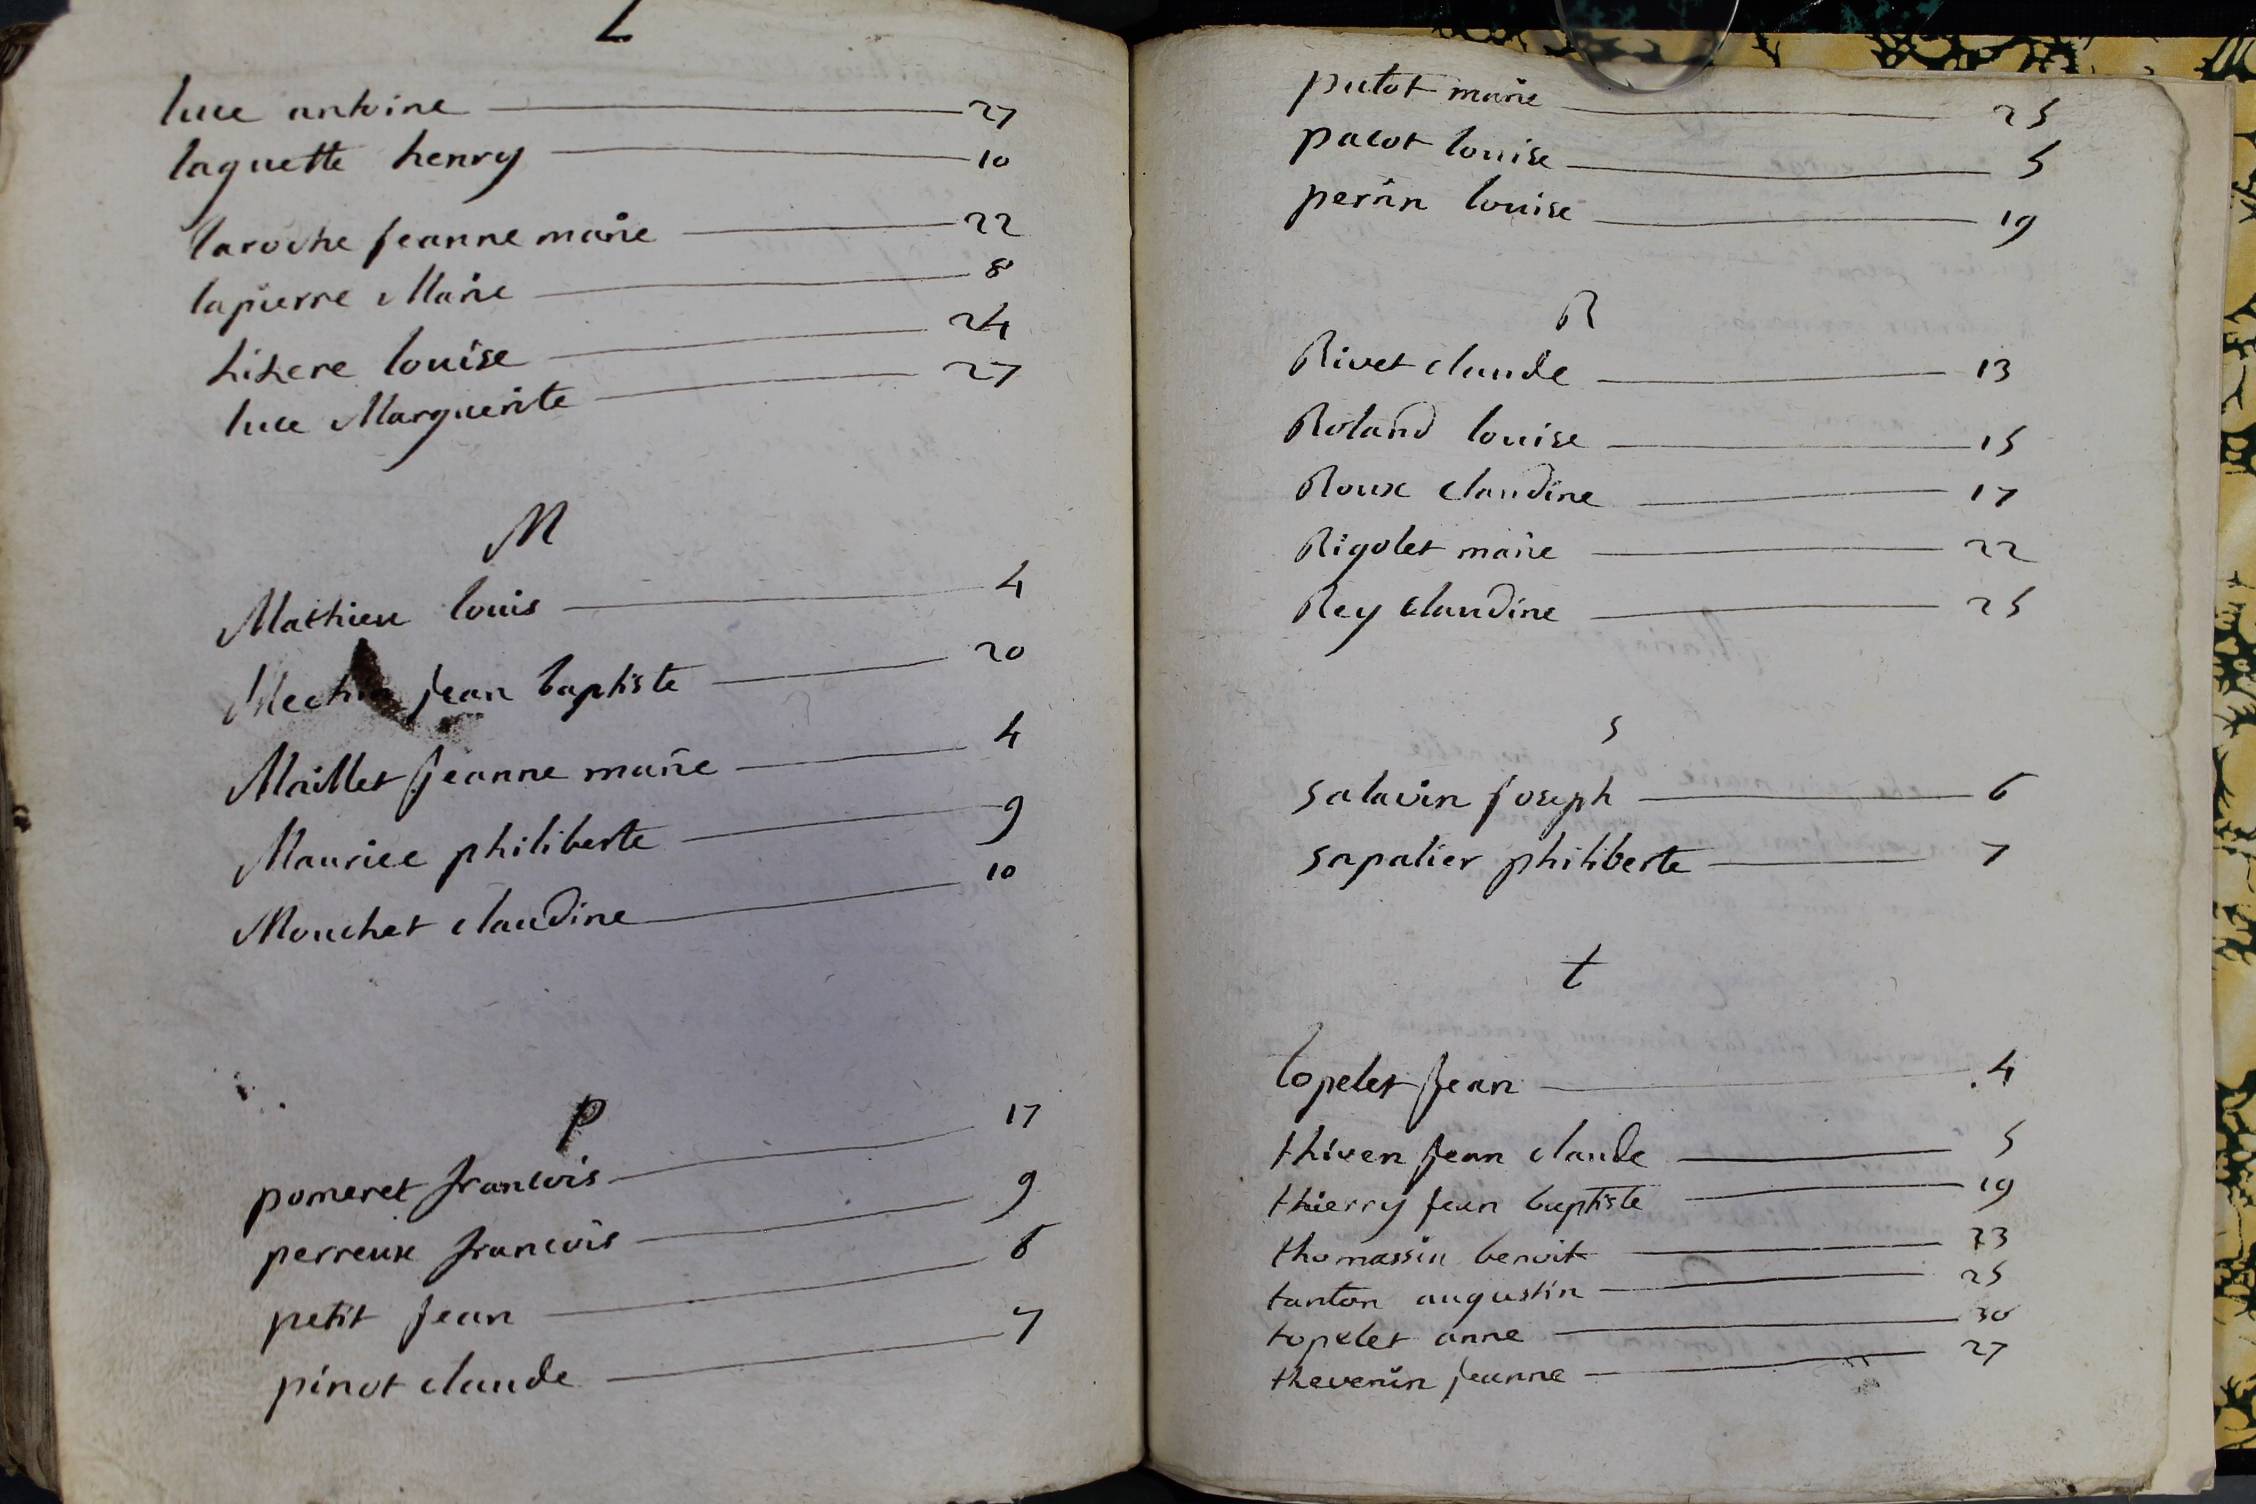 L
luce antoine 27
laguette henry 10
laroche jeanne marie 22
lapierre Marie 8
likere louise 24
luce Marguerite 27
M
Mathieu louis 4
Mechin jean baptiste 20
Maillet jeanne marie 4
Maurice philiberte 9
Mouchet claudine 10
P
pomeret francois 17
perreux francois 9
petit jean 6
pinot claude 7
putot marie 25
pacot louise 5
perrin louise 19
R
Rivet claude 13
Roland louise 15
Roux claudine 17
Rigolet marie 22
Rey claudine 25
s
salavin joseph 6
sapalier philiberte 7
t
topelet jean 4
thiven jean claude 5
thierry jean baptiste 19
thomassin benoit 23
tanton augustin 25
topelet anne 30
thevenin jeanne 27